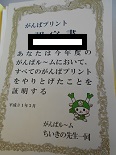 がんばプリント
あなたは今年度の
がんばルームにおいて、
すべてのがんばプリント
をやりとげたことを
証明する
平成21年3月
がんばルーム
ちいきの先生一同